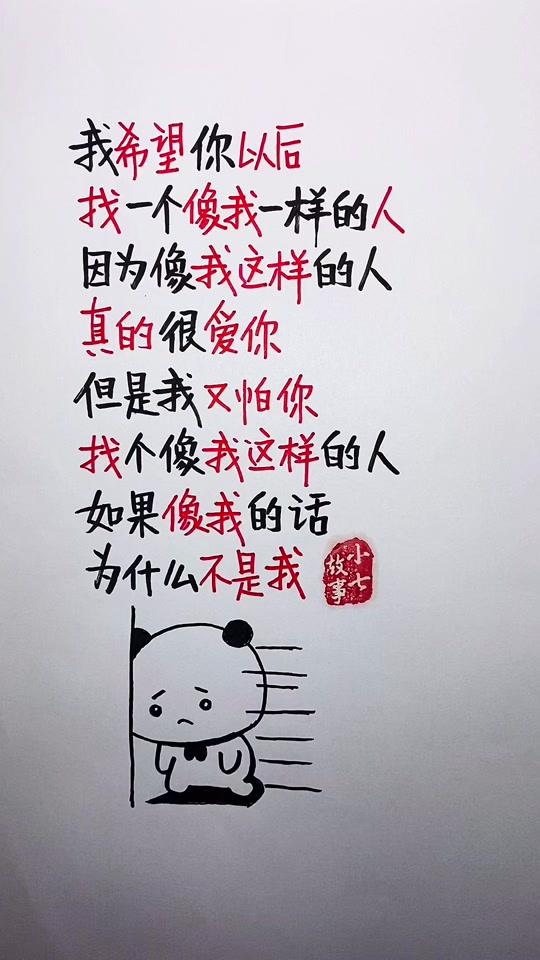 我希望你以后
找一个像我一样的人
因为像我这样的人
真的很爱你
但是我又怕你
找个像我这样的人
如果像我的话
为什么不是我
小七
故事